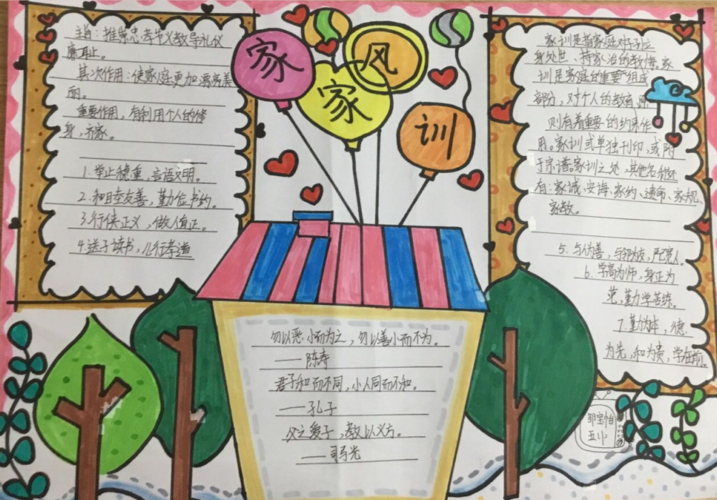 家风
家训
主旨:推崇忠孝节义教导礼仪
廉耻。
其次作用:使家庭更加满和美
面。
重要作用,有利用个人的修
身、齐家。
1.举止稳重,言语文明。
2.和睦友善,勤俭书约。
3.行侠正义,做人真正。
4.送子读书,儿行孝道
家训是指家庭对子孙
身处世、持家治的教诲,家
训是家庭的重要组成
部分,对个人的教育、原
则有着重要的约束作
用。家训或单独刊印,或附
于宗谱。家训之处,其他名称还
有:家诫、家诲、家约、遗命、家规、
家教。
5.与为善,
6.学高为师,身正为
范,勤力学苦练。
7.勤为本,德
为先,和为贵,学在前。
勿以恶小而为之,勿以善小而不为。
——陈寿
君子和而不同,小人同而不和。
——孔子
父之爱子,教以义方。
——司马光
五(1)